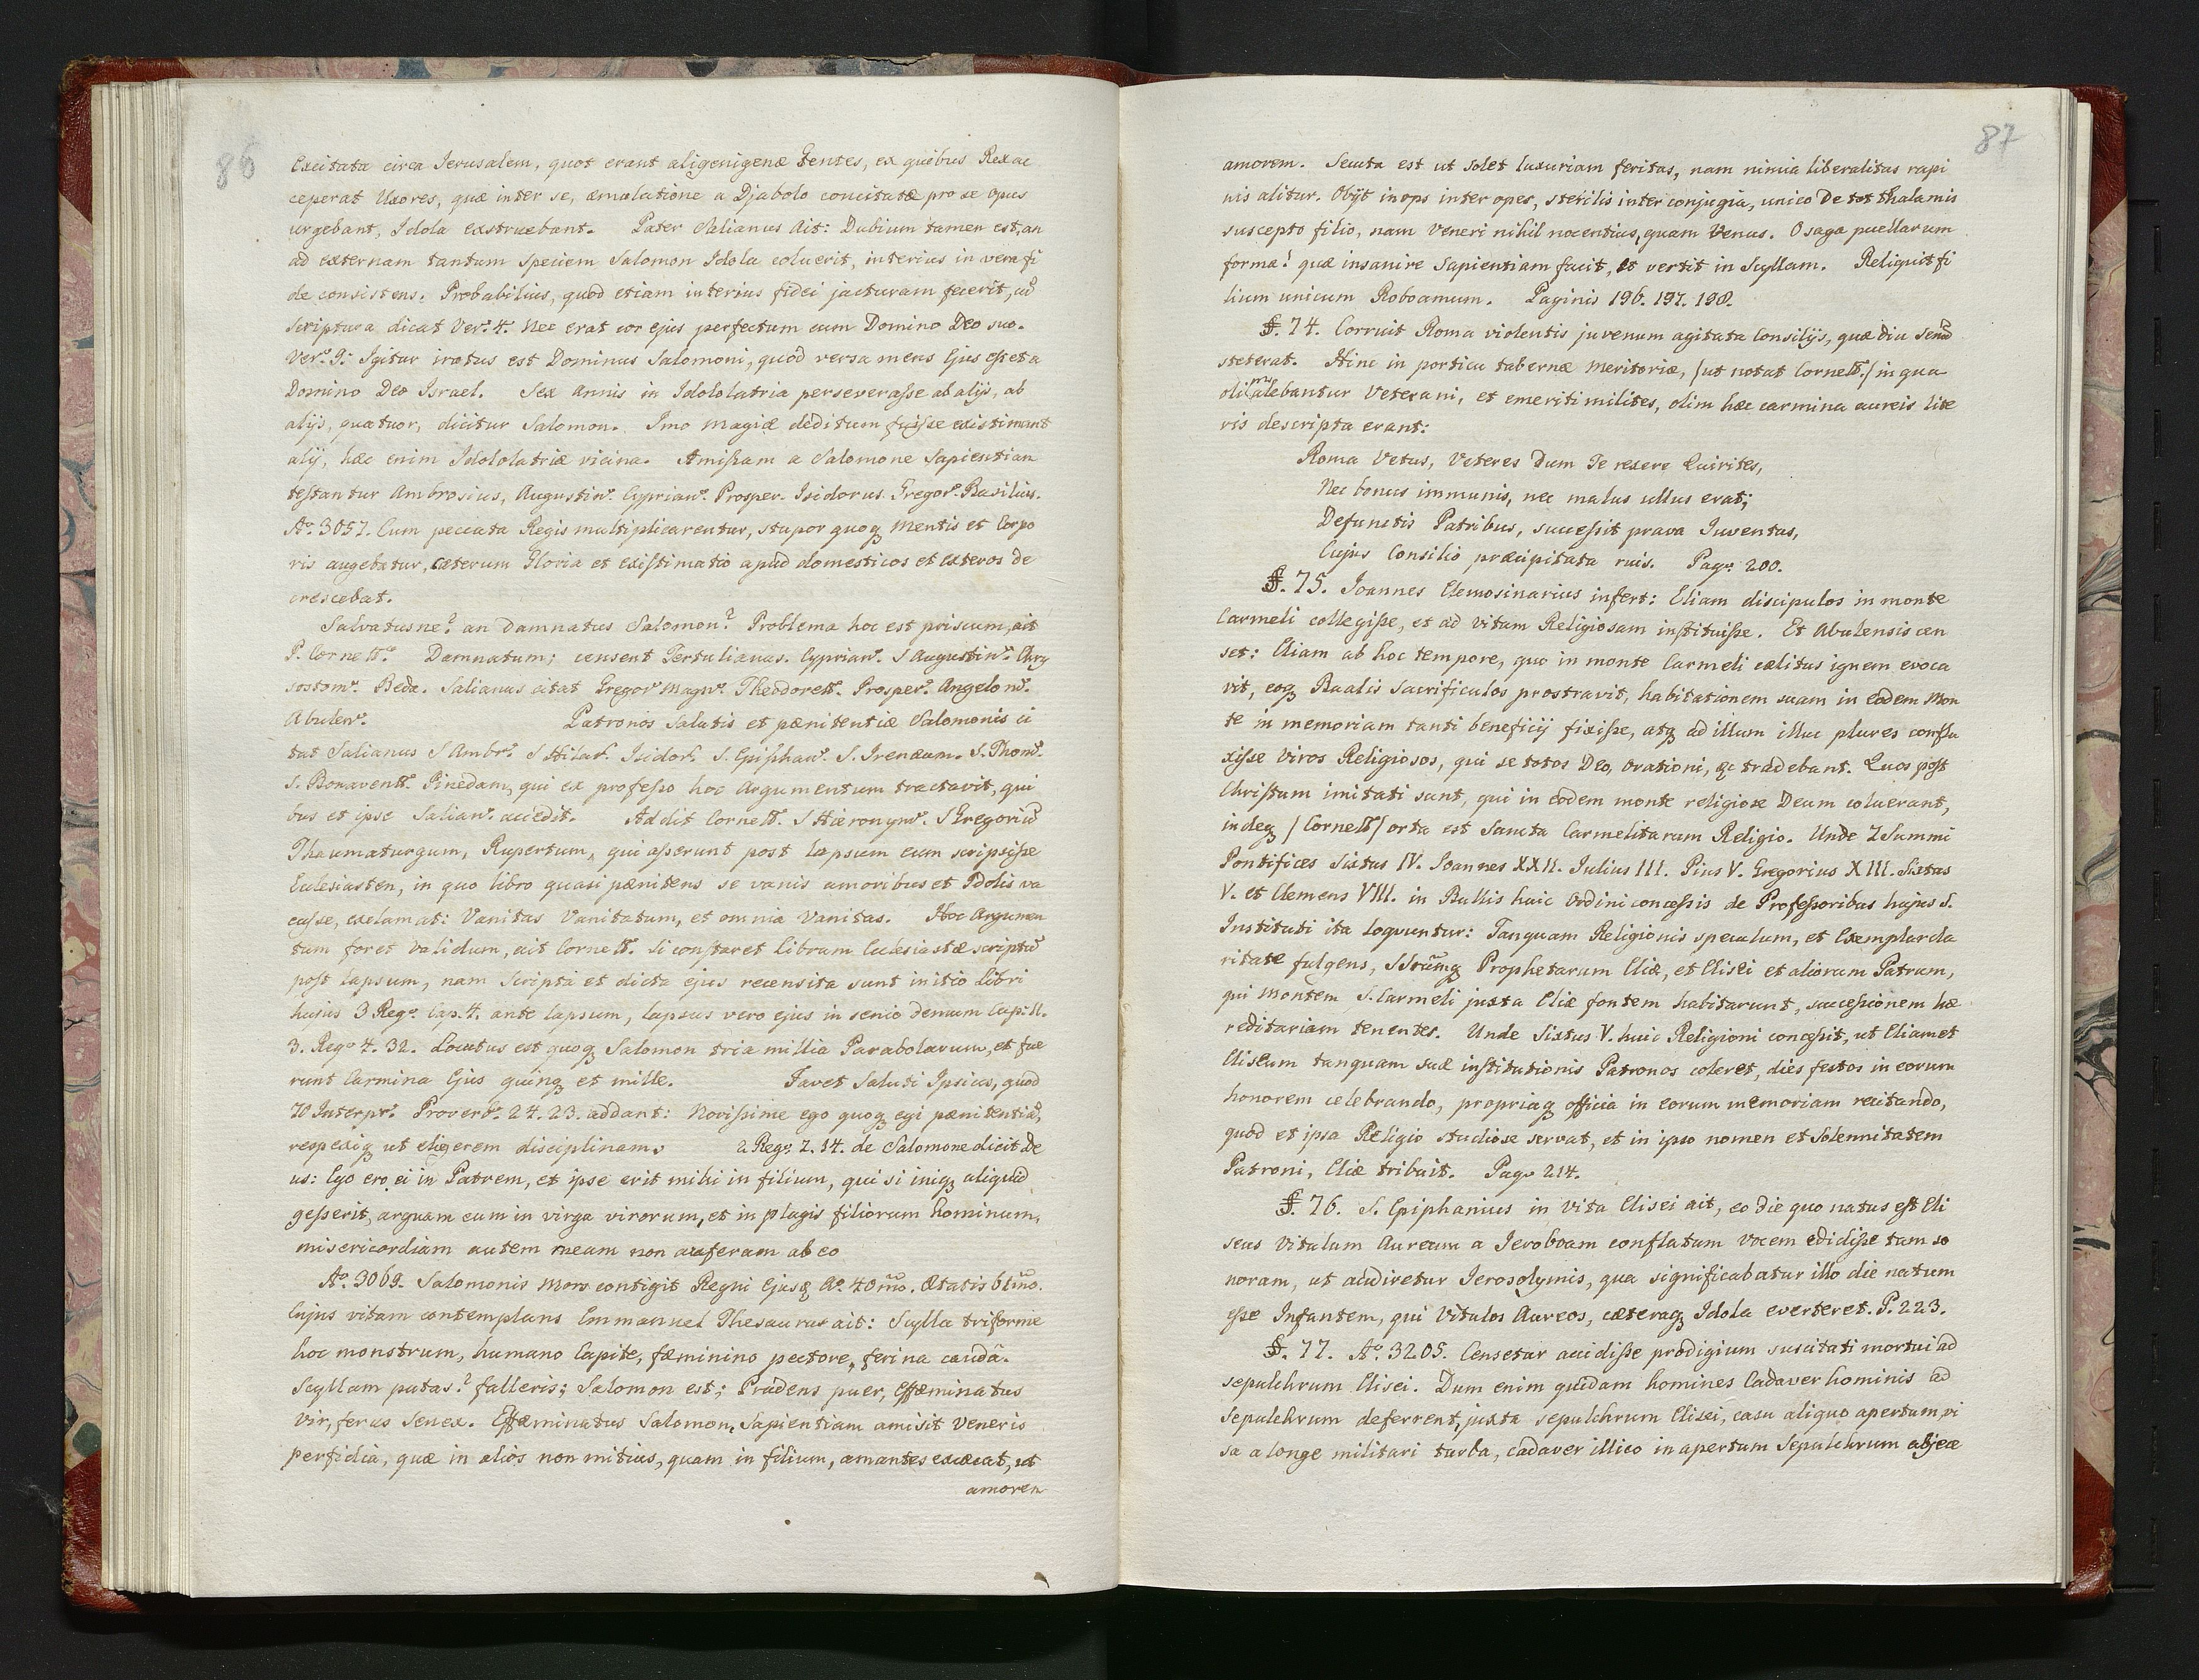 86
Excitata circa Jerusalem, quot erant aligenigenæ Gentes, ex quibus Rex ac
ceperat Uxores, quæ inter se, æmulatione a Djabolo concitatæ pro se opus
urgebant, Idola exstruebant. Pater Salianus Ait: Dubium tamen est, an
ad externam tantum speciem Salomon Idola coluerit, interius in vera fi
de consistens. Probabilius, quod etiam interius fidei jacturam fecerit, cũ
Scriptura dicat Ver: 4. Nec erat cor ejus perfectum cum Domino Deo suo.
Ver: 9: Igitur iratus est Dominus Salomoni, quòd versa mens Ejus esset a
Domino Deo Israel. Sex Annis in Idololatria perseverasse ab alijs, ab
alijs, quatuor, dicitur Salomon. Imo Magiæ deditum fuisse existimant
alij, hæc enim Idololatriæ vicina. Amissam a Salomone Sapientian
testantur Ambrosius, Augustin9. Cyprian9. Prosper. Isidorus. Gregor9. Basilius.
Aº. 3057. Cum peccata Regis multiplicarentur, stupor quoq Mentis et Corpo
ris augebatur, cæterum Gloria et Existimatio apud domesticos et exteros de
crescebat.
Salvatusne? an Damnatus Salomon? Problema hoc est priscum, ait
P. Cornell9. Damnatum; censent Tertulianus. Cyprian9. S Augustin9. Chry
sostom9. Beda. Salianus citat Gregor9 Magn9. Theodoret9. Prosper9. Angelom9.
Abulen9. Patronos Salutis et pænitentiæ Salomonis ci
tat Salianus S Ambr9. S Hilar9. Isidor9. S. Epiphan9. S. Irenæum. S. Thom9.
S. Bonavent9. Pinedam, qui ex professo hoc Argumentum tractavit, qui
bus et ipse Salian9. accedit. Addit Cornell9. S Hieronym9. S Gregoriũ
Thaumaturgum, Rupertum, qui asserunt post lapsum eum scripsisse
Eclesiasten, in quo libro quasi pænitens se vanis amoribus et Idolis va
casse, exclamat: Vanitas Vanitatum, et omnia Vanitas. Hoc Argumen
tum foret Validum, ait Cornell9. si constaret Librum Eclesiastæ scriptũ
post lapsum, nam scripta et dicta ejus recensita sunt initio Libri
hujus 3 Reg: Cap. 4. ante lapsum, lapsus vero ejus in senio demum Cap: 11.
3. Reg: 4. 32. Locutus est quoq Salomon tria millia Parabolarum, et fue
runt Carmina Ejus quinq et mille. Favet Saluti Ipsius, quod
70 Interpr: Proverb: 24. 23. addant: Novissime ego quoq egi pænitentiã,
respexiq ut eligerem disciplinam. 2 Reg: 7. 14. de Salomone dicit De
us: Ego ero ei in Patrem, et ipse erit mihi in filium, qui si iniq aliquid
gesserit, arguam eum in virga virorum, et in plagis filiorum hominum,
misericordiam autem meam non auferam ab eo
Aº. 3069. Salomonis Mors contigit Regni Ejusq Aº. 40mo. Ætatis 61mo.
Cujus vitam contemplans Emmanuel Thesaurus ait: Scylla triforme
hoc monstrum, humano Capite, fæminino pectore, ferina caudâ.
Scyllam putas? falleris; Salomon est; Prudens puer, Effæminatus
Vir, ferus Senex. Effæminatus Salomon, Sapientiam amisit Veneris
perfidia, quæ in alios non mitius, quam in filium, amantes excæcat, ut
amorem
87
amorem. Secuta est ut solet luxuriam feritas, nam nimia liberalitas rapi
nis alitur. Obijt inops inter opes, sterilis inter conjugia, unico De tot thalamis
suscepto filio, nam Veneri nihil nocentius, quam Venus. O saga puellarum
forma! quæ insanire Sapientiam facit, et vertit in Scyllam. Reliquit fi
lium unicum Roboamum. Paginis 196. 197. 198.
§. 74. Corruit Roma violentis juvenum agitata Consilijs, quæ diu senũ
steterat. Hinc in porticu tabernæ Meritoriæ, /ut notat Cornell9./ in qua
olim alebantur Veterani, et emeriti milites, olim hæc carmina aureis lite
ris descripta erant:
Roma Vetus, Veteres Dum Te rexere Quirites,
Nec bonus immunis, nec malus ullus erat;
Defunctis Patribus, successit prava Iuventus,
Cujus Consilio præcipitata ruis. Pag: 200.
§. 75. Joannes Elemosinarius infert: Eliam discipulos in monte
Carmeli collegisse, et ad vitam Religiosam instituisse. Et Abulensis cen
set: Eliam ab hoc tempore, quo in monte Carmeli cælitus ignem evoca
vit, eoq Baalis Sacrificulos prostravit, habitationem suam in Eodem Mon
te in memoriam tanti beneficij fixisse, atq ad illum illuc plures conflu
xisse Viros Religiosos, qui se totos Deo, Orationi, &c tradebant. Quos post
Christum imitati sunt, qui in eodem monte religiose Deum coluerant,
indeq /Cornell9/ orta est Sancta Carmelitarum Religio. Unde 7 Summi
Pontifices Sixtus IV. Joannes XXII. Julius III. Pius V. Gregorius XIII. Sixtus
V. et Clemens VIII. in Bullis huic Ordini concessis de Professoribus hujus S.
Instituti ita loquuntur: Tanquam Religionis speculum, et Exemplar cla
ritate fulgens, SStũmq Prophetarum Eliæ, et Elisei et aliorum Patrum,
qui Montem S. Carmeli juxta Eliæ fontem habitarunt, successionem hæ
reditariam tenentes. Unde Sixtus V. huic Religioni concessit, ut Eliam et
Eliseum tanquam suæ institutionis Patronos coleret, dies festos in eorum
honorem celebrando, propriaq officia in eorum memoriam recitando,
quod et ipsa Religio studiose servat, et in ipso nomen et Solennitatem
Patroni, Eliæ tribuit. Pag: 214.
§. 76. S. Epiphanius in Vita Elisei ait, eo die quo natus est Eli
seus Vitulum Aureum a Jeroboam conflatum vocem edidisse tam so
noram, ut audiretur Jerosolymis, qua significabatur illo die natum
esse Infantem, qui Vitulos Aureos, cæteraq Idola everteret. P. 223.
§. 77. Aº. 3205. Censetur accidisse prodigium suscitati mortui ad
sepulchrum Elisei. Dum enim quidam homines Cadaver hominis ad
Sepulchrum deferrent, juxta sepulchrum Elisei, casu aliquo apertum, vi
sa a longe militari turba, cadaver illico in apertum Sepulchrum abjece